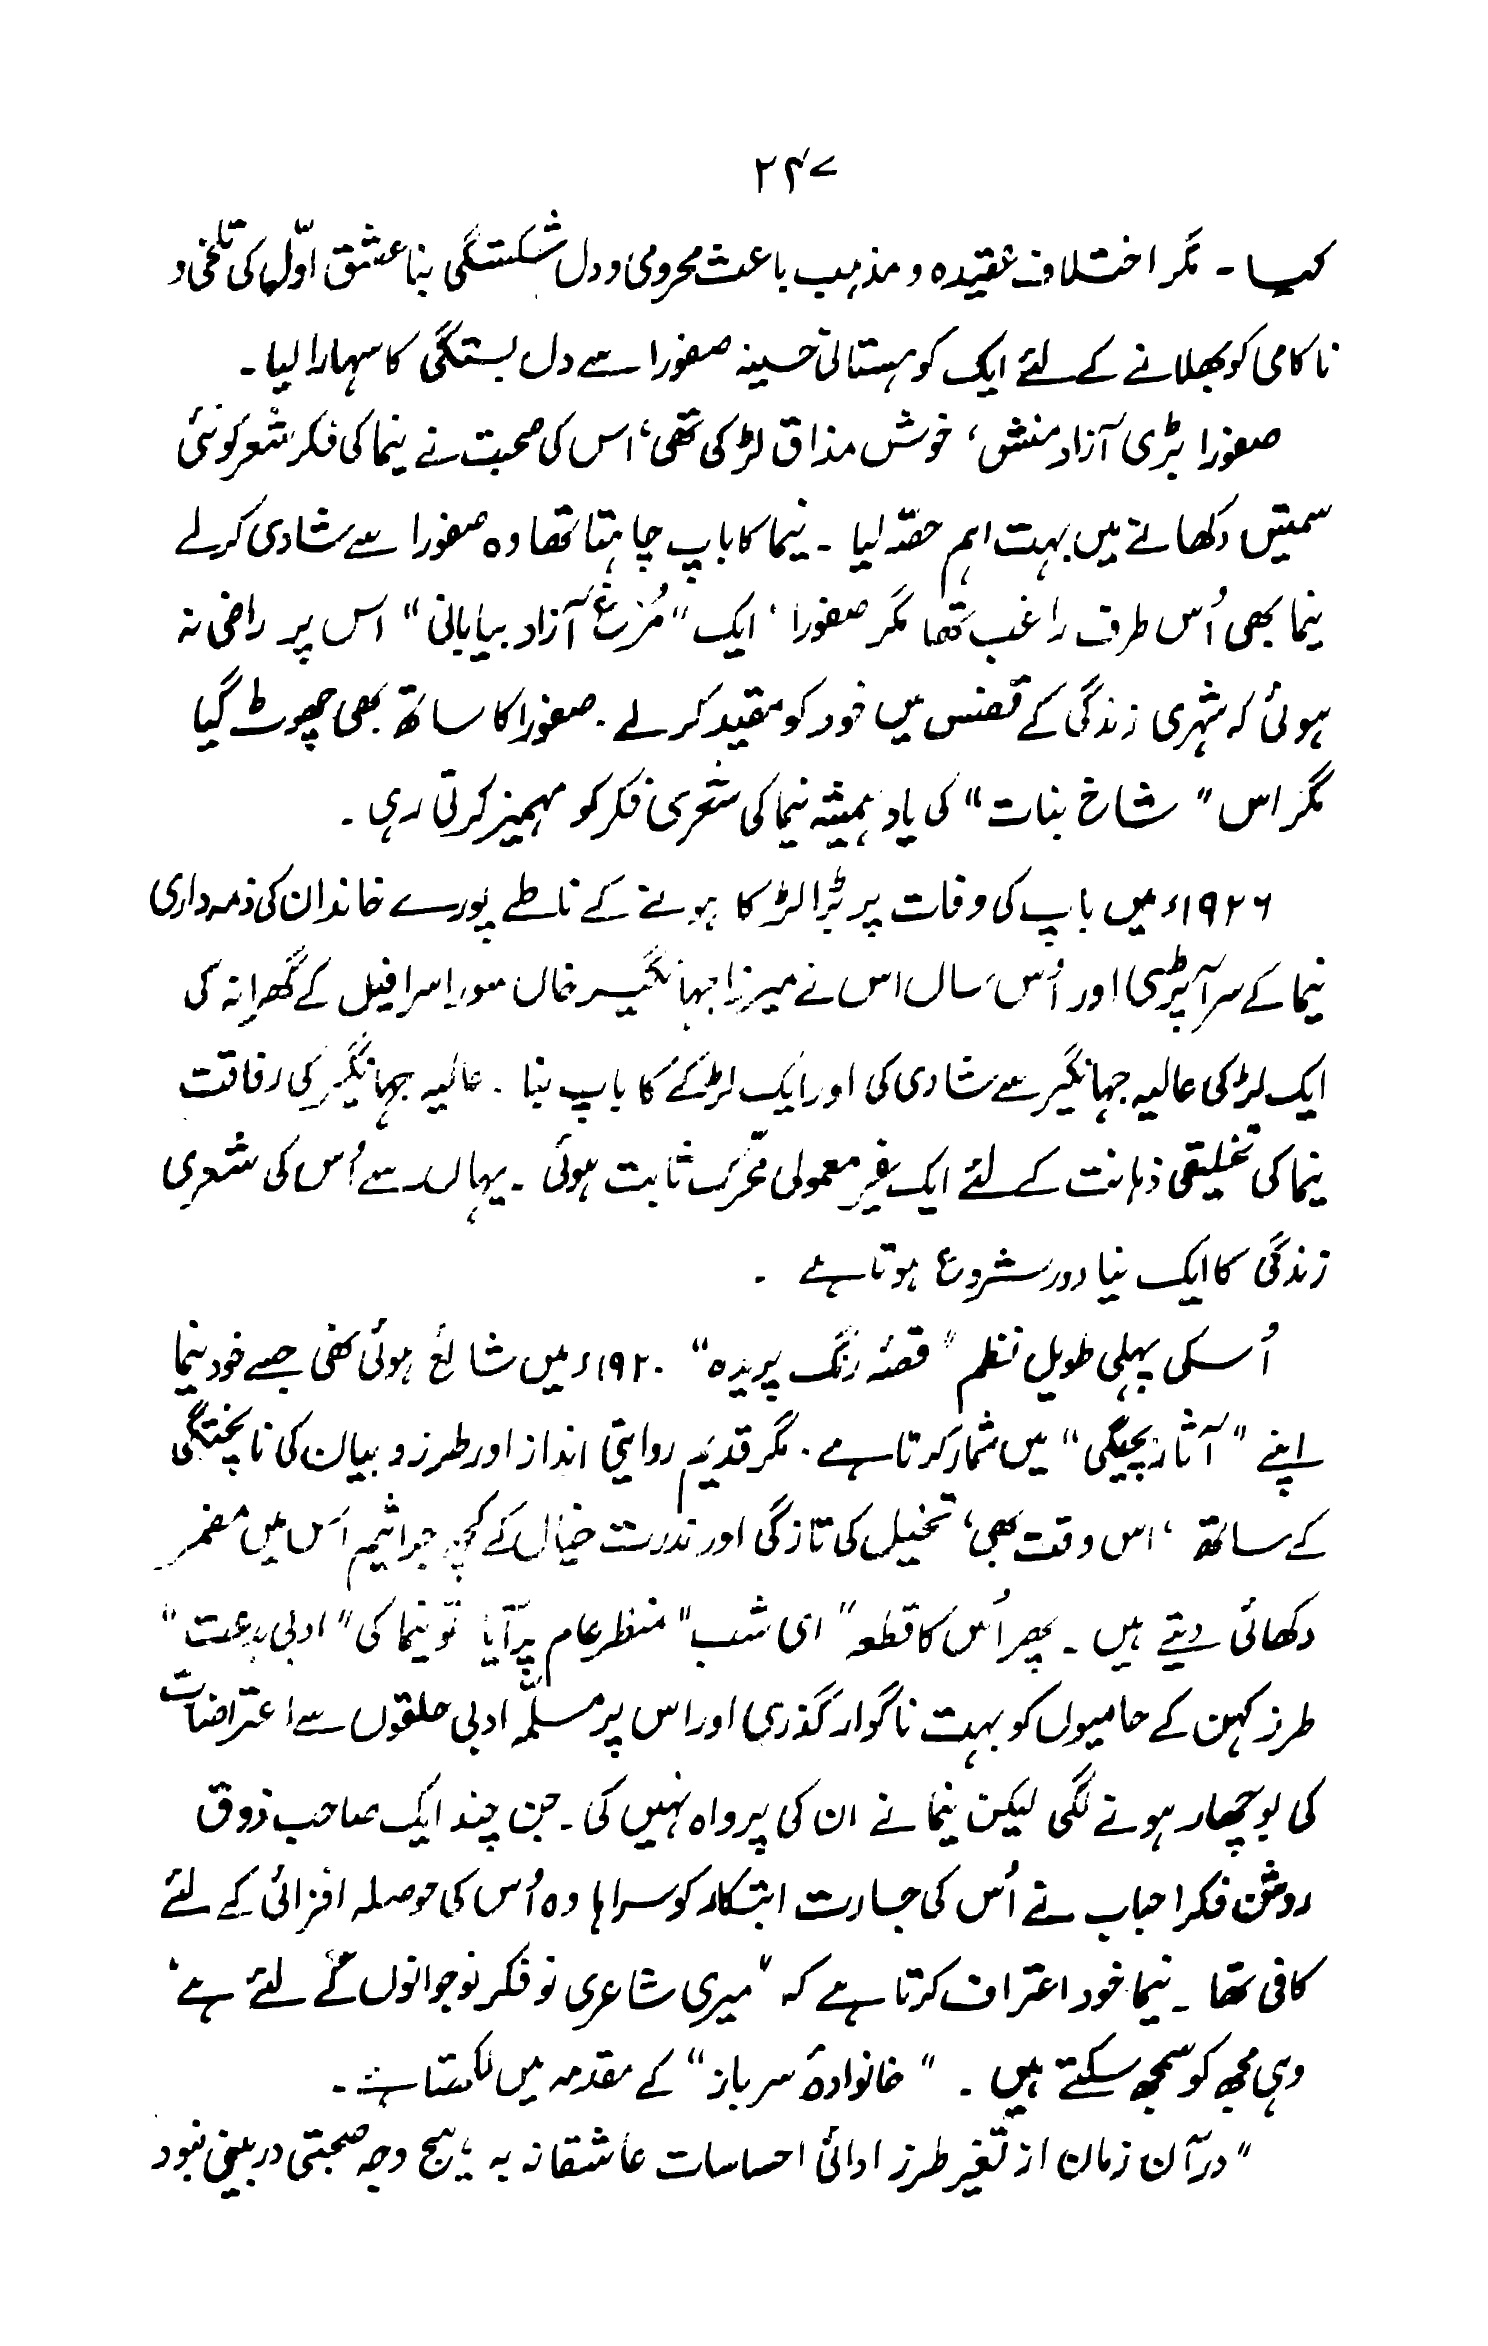 ۲۴۷
کیا ۔ مگر اختلاف عقیدہ و مذہب باعث محرومی و دل شکستگی بنا عشق اوّل کی تلخی و
ناکامی کو بھلانے کے لئے ایک کوہستانی حسینہ صفورا سے دل بستگی کا سہارا لیا ۔
صفورا بڑی آزاد منش، خوش مذاق لڑکی تھی، اس کی صحبت نے نیما کی فکر شعر کو نئی
سمتیں دکھانے میں بہت اہم حصّہ لیا ۔ نیما کا باپ چاہتا تھا وہ صفورا سے شادی کر لے
نیما بھی اُس طرف راغب تھا مگر صفورا ، ایک "مُرغِ آزاد بیابانی" اس پر راضی نہ
ہوئی کہ شہری زندگی کے قفس میں خود کو مقید کر لے ۔ صفورا کا ساتھ بھی چھوٹ گیا
مگر اس "شاخ بنات" کی یاد ہمیشہ نیما کی شعری فکر کو مہمیز کرتی رہی ۔
۱۹۲۶ء میں باپ کی وفات پر بڑا لڑکا ہونے کے ناطے پورے خاندان کی ذمہ داری
نیما کے سر آپڑی اور اُس سال اس نے میرزا جہانگیر خاں صور اسرافیل کے گھرانہ کی
ایک لڑکی عالیہ جہانگیر سے شادی کی اور ایک لڑکے کا باپ بنا ۔ عالیہ جہانگیر کی رفاقت
نیما کی تخلیقی ذہانت کے لئے ایک غیر معمولی محّرک ثابت ہوئی ۔ یہاں سے اُس کی شعری
زندگی کا ایک نیا دور شروع ہوتا ہے ۔
اُسکی پہلی طویل نظم "قصۂ رنگ پریدہ" ۱۹۲۰ء میں شائع ہوئی تھی جسے خود نیما
اپنے "آثار بچگی" میں شمار کرتا ہے ۔ مگر قدیم روایتی انداز اور طرز و بیان کی ناپختگی
کے ساتھ ، اس وقت بھی، تخیل کی تازگی اور ندرت خیال کے کچھ جراثیم اس میں مضمر
دکھائی دیتے ہیں ۔ پھر اُس کا قطعہ "ای شب" منظر عام پر آیا تو نیما کی "ادبی بدعت"
طرز کہن کے حامیوں کو بہت ناگوار گذری اور اس پر مسلّمہ ادبی حلقوں سے اعتراضات
کی بوچھار ہونے لگی لیکن نیما نے ان کی پرواہ نہیں کی ۔ جن چند ایک صاحب ذوق
روشن فکر احباب نے اُس کی جسارت ابتکار کو سراہا وہ اُس کی حوصلہ افزائی کے لئے
کافی تھا ۔ نیما خود اعتراف کرتا ہے کہ "میری شاعری نو فکر نوجوانوں کے لئے ہے،
وہی مجھ کو سمجھ سکتے ہیں ۔ "خانوادۂ سرباز" کے مقدمہ میں لکھتا ہے ۔
"درآن زمان از تغیر طرز ادائی احساسات عاشقانہ بہ ہیچ وجہ صحبتی در بین نبود